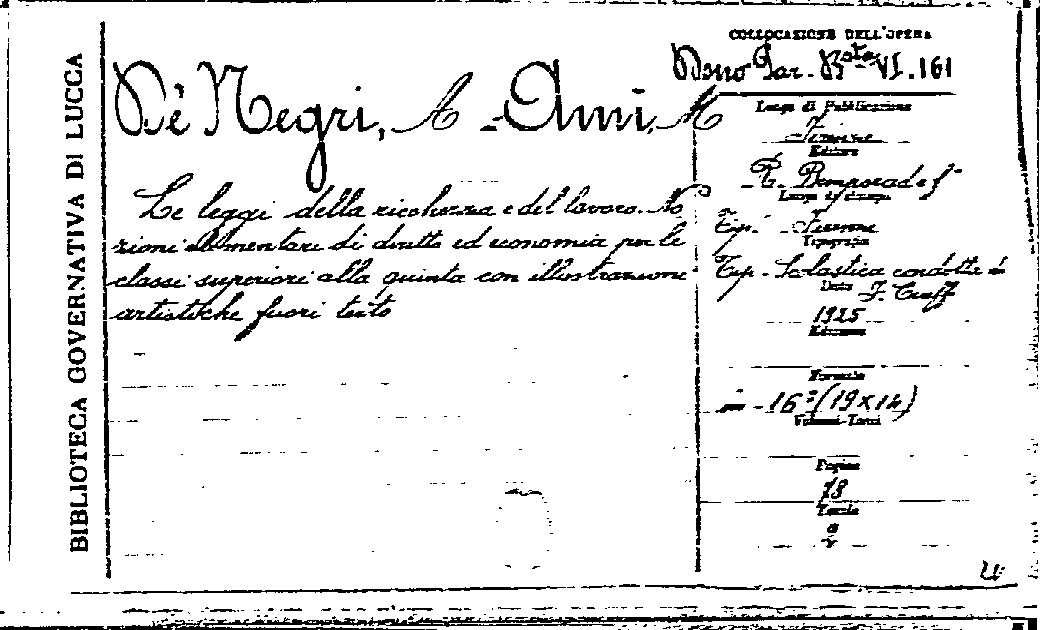 BIBLIOTECA GOVERNATIVA DI LUCCA
Dè Negri, A - Ami, M
Le leggi della ricchezza e del lavoro. No
zioni elementari di diritto ed economia per le
classi superiori alla quinta con illustrazioni
artistiche fuori testo
COLLOCAZIONE DELL'OPERA
Dono Gar. VI. 161
Luogo di Pubblicazione
Firenze
Editore
R. Bemporad e f°
Luogo di stampa
Tip. - Firenze
Tipografia
Tip. Scolastica condotta
Data
1925
Edizione
Formato
in - 16° (19 x 14)
Volumi-Tomi
Pagine
78
Tavole